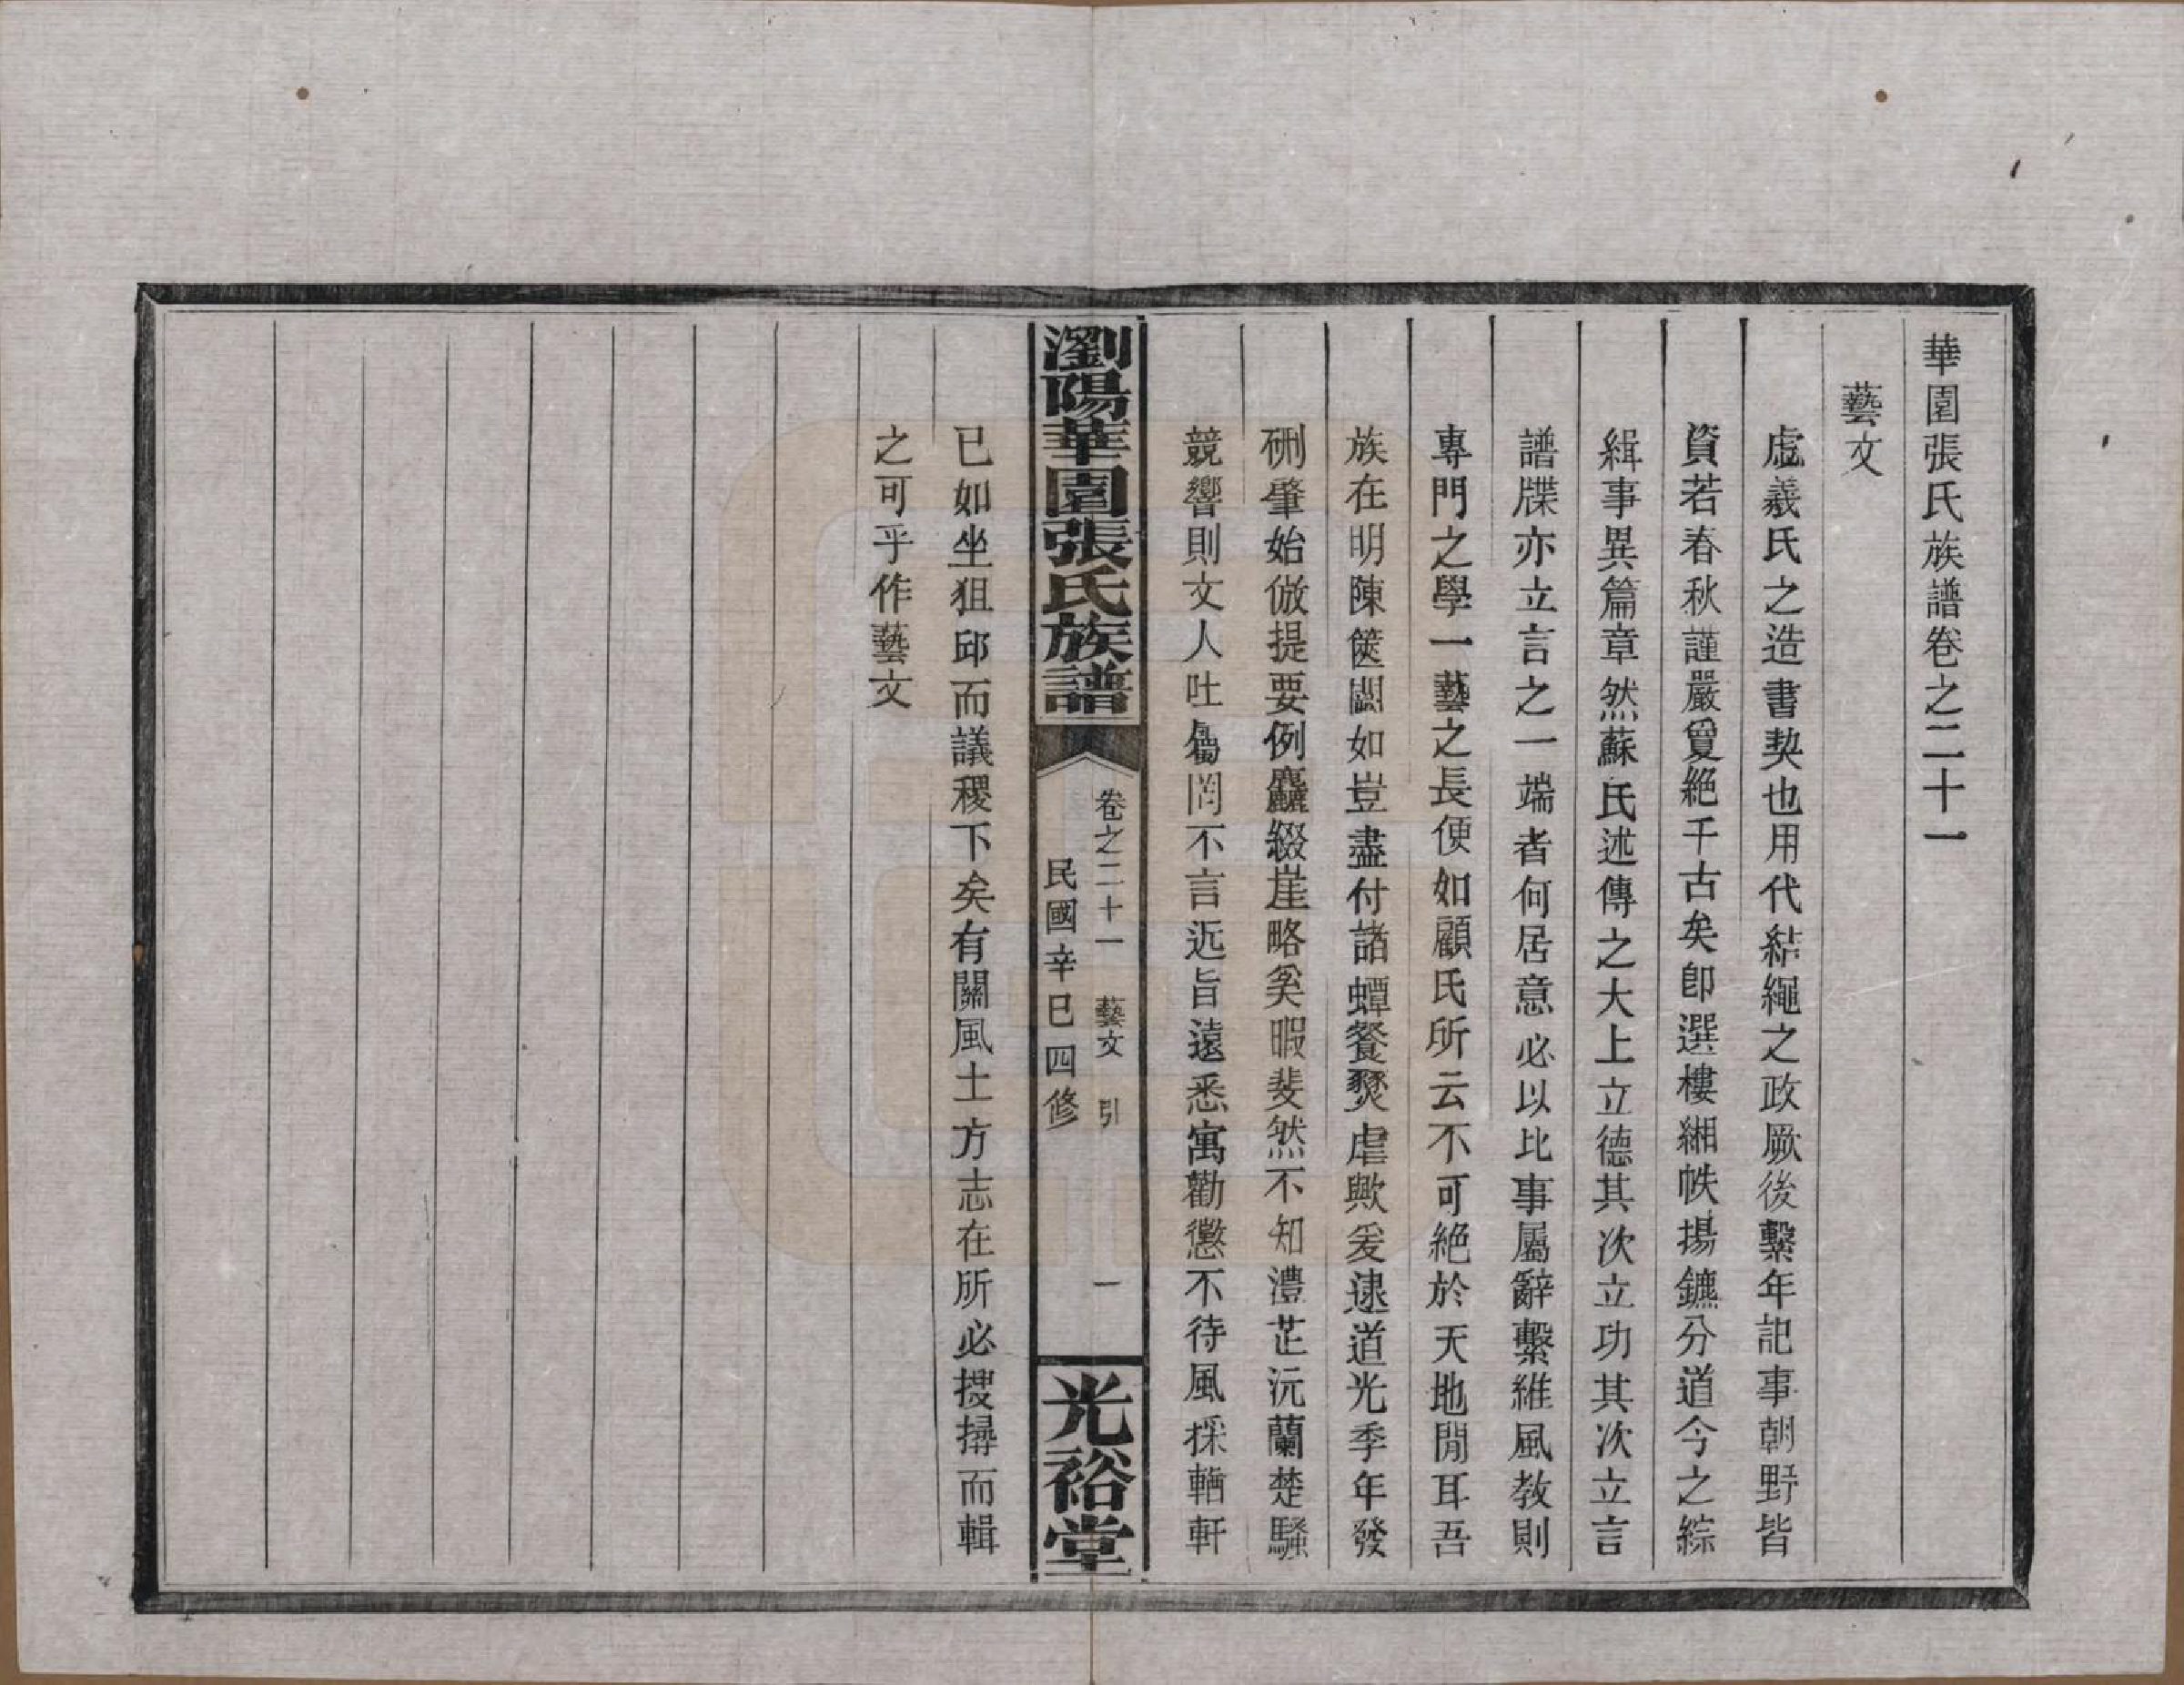 華園張氏族譜卷之二十一
藝文
虙羲氏之造書契也用代結繩之政厥後繫年記事朝野皆
資若春秋謹嚴敻絕千古矣卽選樓緗帙揚鑣分道今之綜
緝事異篇章然蘇氏述傳之大上立德其次立功其次立言
譜牒亦立言之一端者何居意必以比事屬辭繫維風教則
專門之學一藝之長便如顧氏所云不可絕於天地閒耳吾
族在明陳篋闕如豈盡付諸蟫餐燹虐歟爰逮道光季年發
硎肇始倣提要例麤綴崖略奚暇斐然不知澧芷沅蘭楚騷
競響則文人吐屬罔不言近旨遠悉寓勸懲不待風採輶軒
瀏陽華園張氏族譜
卷之二十一 藝文 引 一
民國辛巳四修
光裕堂
已如坐狙邱而議稷下矣有關風土方志在所必搜撏而輯
之可乎作藝文